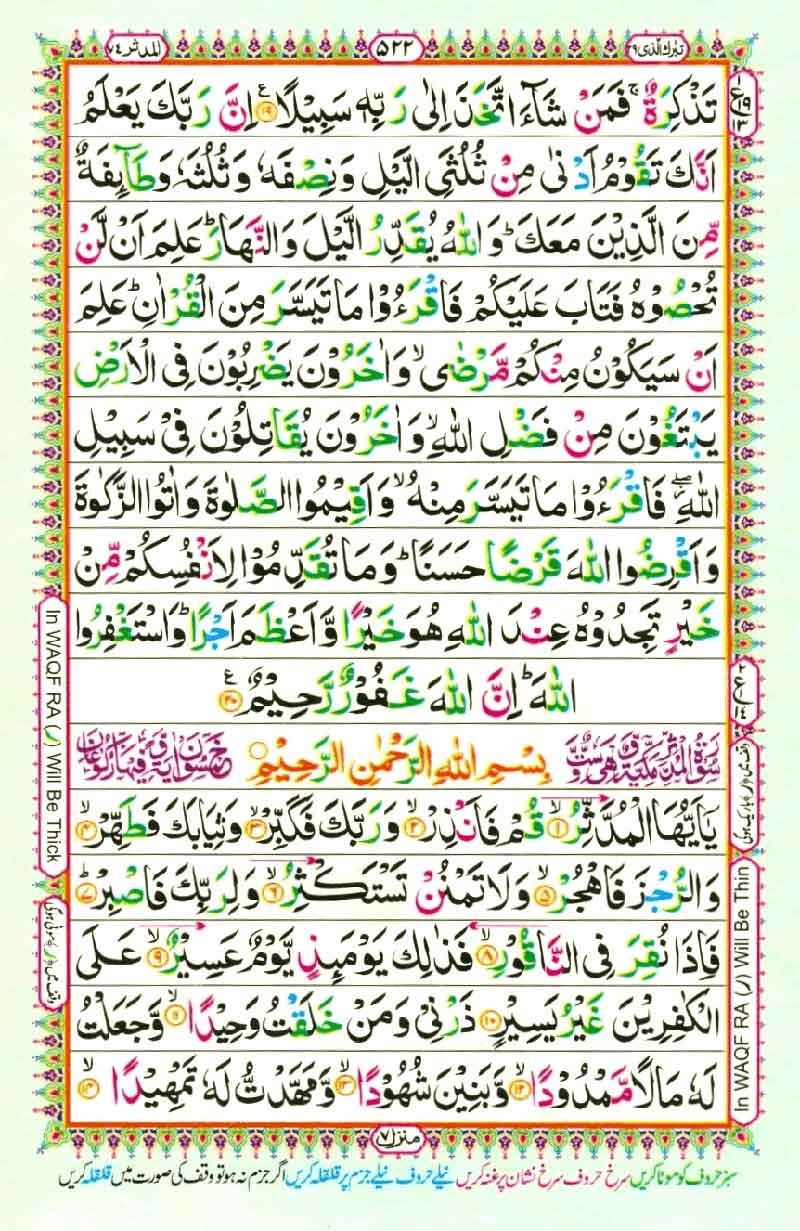 تبٰرك الذی ٢٩
٥٢٢
المدثر ٧٤
تَذْكِرَةٌ ۚ فَمَنْ شَآءَ اتَّخَذَ اِلٰى رَبِّهٖ سَبِيْلًا ۝١٩ اِنَّ رَبَّكَ يَعْلَمُ
اَنَّكَ تَقُوْمُ اَدْنٰى مِنْ ثُلُثَىِ الَّيْلِ وَنِصْفَهٗ وَثُلُثَهٗ وَطَآئِفَةٌ
مِّنَ الَّذِيْنَ مَعَكَ ؕ وَاللّٰهُ يُقَدِّرُ الَّيْلَ وَالنَّهَارَ ؕ عَلِمَ اَنْ لَّنْ
تُحْصُوْهُ فَتَابَ عَلَيْكُمْ فَاقْرَءُوْا مَا تَيَسَّرَ مِنَ الْقُرْاٰنِ ؕ عَلِمَ
اَنْ سَيَكُوْنُ مِنْكُمْ مَّرْضٰى ۙ وَاٰخَرُوْنَ يَضْرِبُوْنَ فِى الْاَرْضِ
يَبْتَغُوْنَ مِنْ فَضْلِ اللّٰهِ ۙ وَاٰخَرُوْنَ يُقَاتِلُوْنَ فِىْ سَبِيْلِ
اللّٰهِ ۖ فَاقْرَءُوْا مَا تَيَسَّرَ مِنْهُ ۙ وَاَقِيْمُوا الصَّلٰوةَ وَاٰتُوا الزَّكٰوةَ
وَاَقْرِضُوا اللّٰهَ قَرْضًا حَسَنًا ؕ وَمَا تُقَدِّمُوْا لِاَنْفُسِكُمْ مِّنْ
خَيْرٍ تَجِدُوْهُ عِنْدَ اللّٰهِ هُوَ خَيْرًا وَّاَعْظَمَ اَجْرًا ؕ وَاسْتَغْفِرُوا
اللّٰهَ ؕ اِنَّ اللّٰهَ غَفُوْرٌ رَّحِيْمٌ ۝٢٠
بِسْمِ اللّٰهِ الرَّحْمٰنِ الرَّحِيْمِ
يٰۤاَيُّهَا الْمُدَّثِّرُ ۙ۝١ قُمْ فَاَنْذِرْ ۙ۝٢ وَرَبَّكَ فَكَبِّرْ ۙ۝٣ وَثِيَابَكَ فَطَهِّرْ ۙ۝٤
وَالرُّجْزَ فَاهْجُرْ ۙ۝٥ وَلَا تَمْنُنْ تَسْتَكْثِرُ ۙ۝٦ وَلِرَبِّكَ فَاصْبِرْ ؕ۝٧
فَاِذَا نُقِرَ فِى النَّاقُوْرِ ۙ۝٨ فَذٰلِكَ يَوْمَئِذٍ يَّوْمٌ عَسِيْرٌ ۙ۝٩ عَلَى
الْكٰفِرِيْنَ غَيْرُ يَسِيْرٍ ۝١٠ ذَرْنِىْ وَمَنْ خَلَقْتُ وَحِيْدًا ۙ۝١١ وَّجَعَلْتُ
لَهٗ مَالًا مَّمْدُوْدًا ۙ۝١٢ وَّبَنِيْنَ شُهُوْدًا ۙ۝١٣ وَّمَهَّدْتُّ لَهٗ تَمْهِيْدًا ۙ۝١٤
منزل ٧
سبز حروف کو موٹا کریں سرخ حروف سرخ نشان پر غنہ کریں نیلے حروف نیلے جزم پر قلقلہ کریں اگر جزم نہ ہو تو وقف کی صورت میں قلقلہ کریں
In WAQF RA (ر) Will Be Thick
وقف میں (ر) موٹی ہوگی
In WAQF RA (ر) Will Be Thin